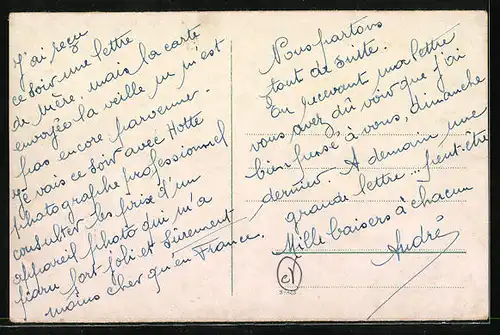 J'ai reçu
ce soir une lettre
de mère, mais la carte
envoyée la veille ne m'est
pas encore parvenue.
Je vais ce soir avec Hotte
photographe professionnel
consulter les prix d'un
appareil photo qui m'a
paru fort joli et sûrement
moins cher qu'en France.
Nous partons
tout de suite.
En recevant ma lettre
vous avez dû voir que j'ai
bien pensé à vous, dimanche
dernier. A demain une
grande lettre... peut-être
Mille baisers à chacun
André